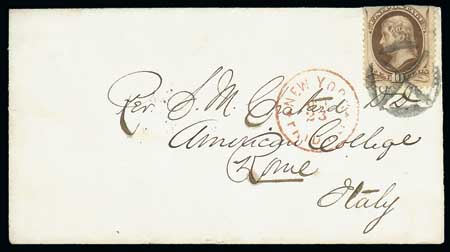 Rev. S. M. Chatard DD
American College
Rome
Italy
NEW YORK
23
10